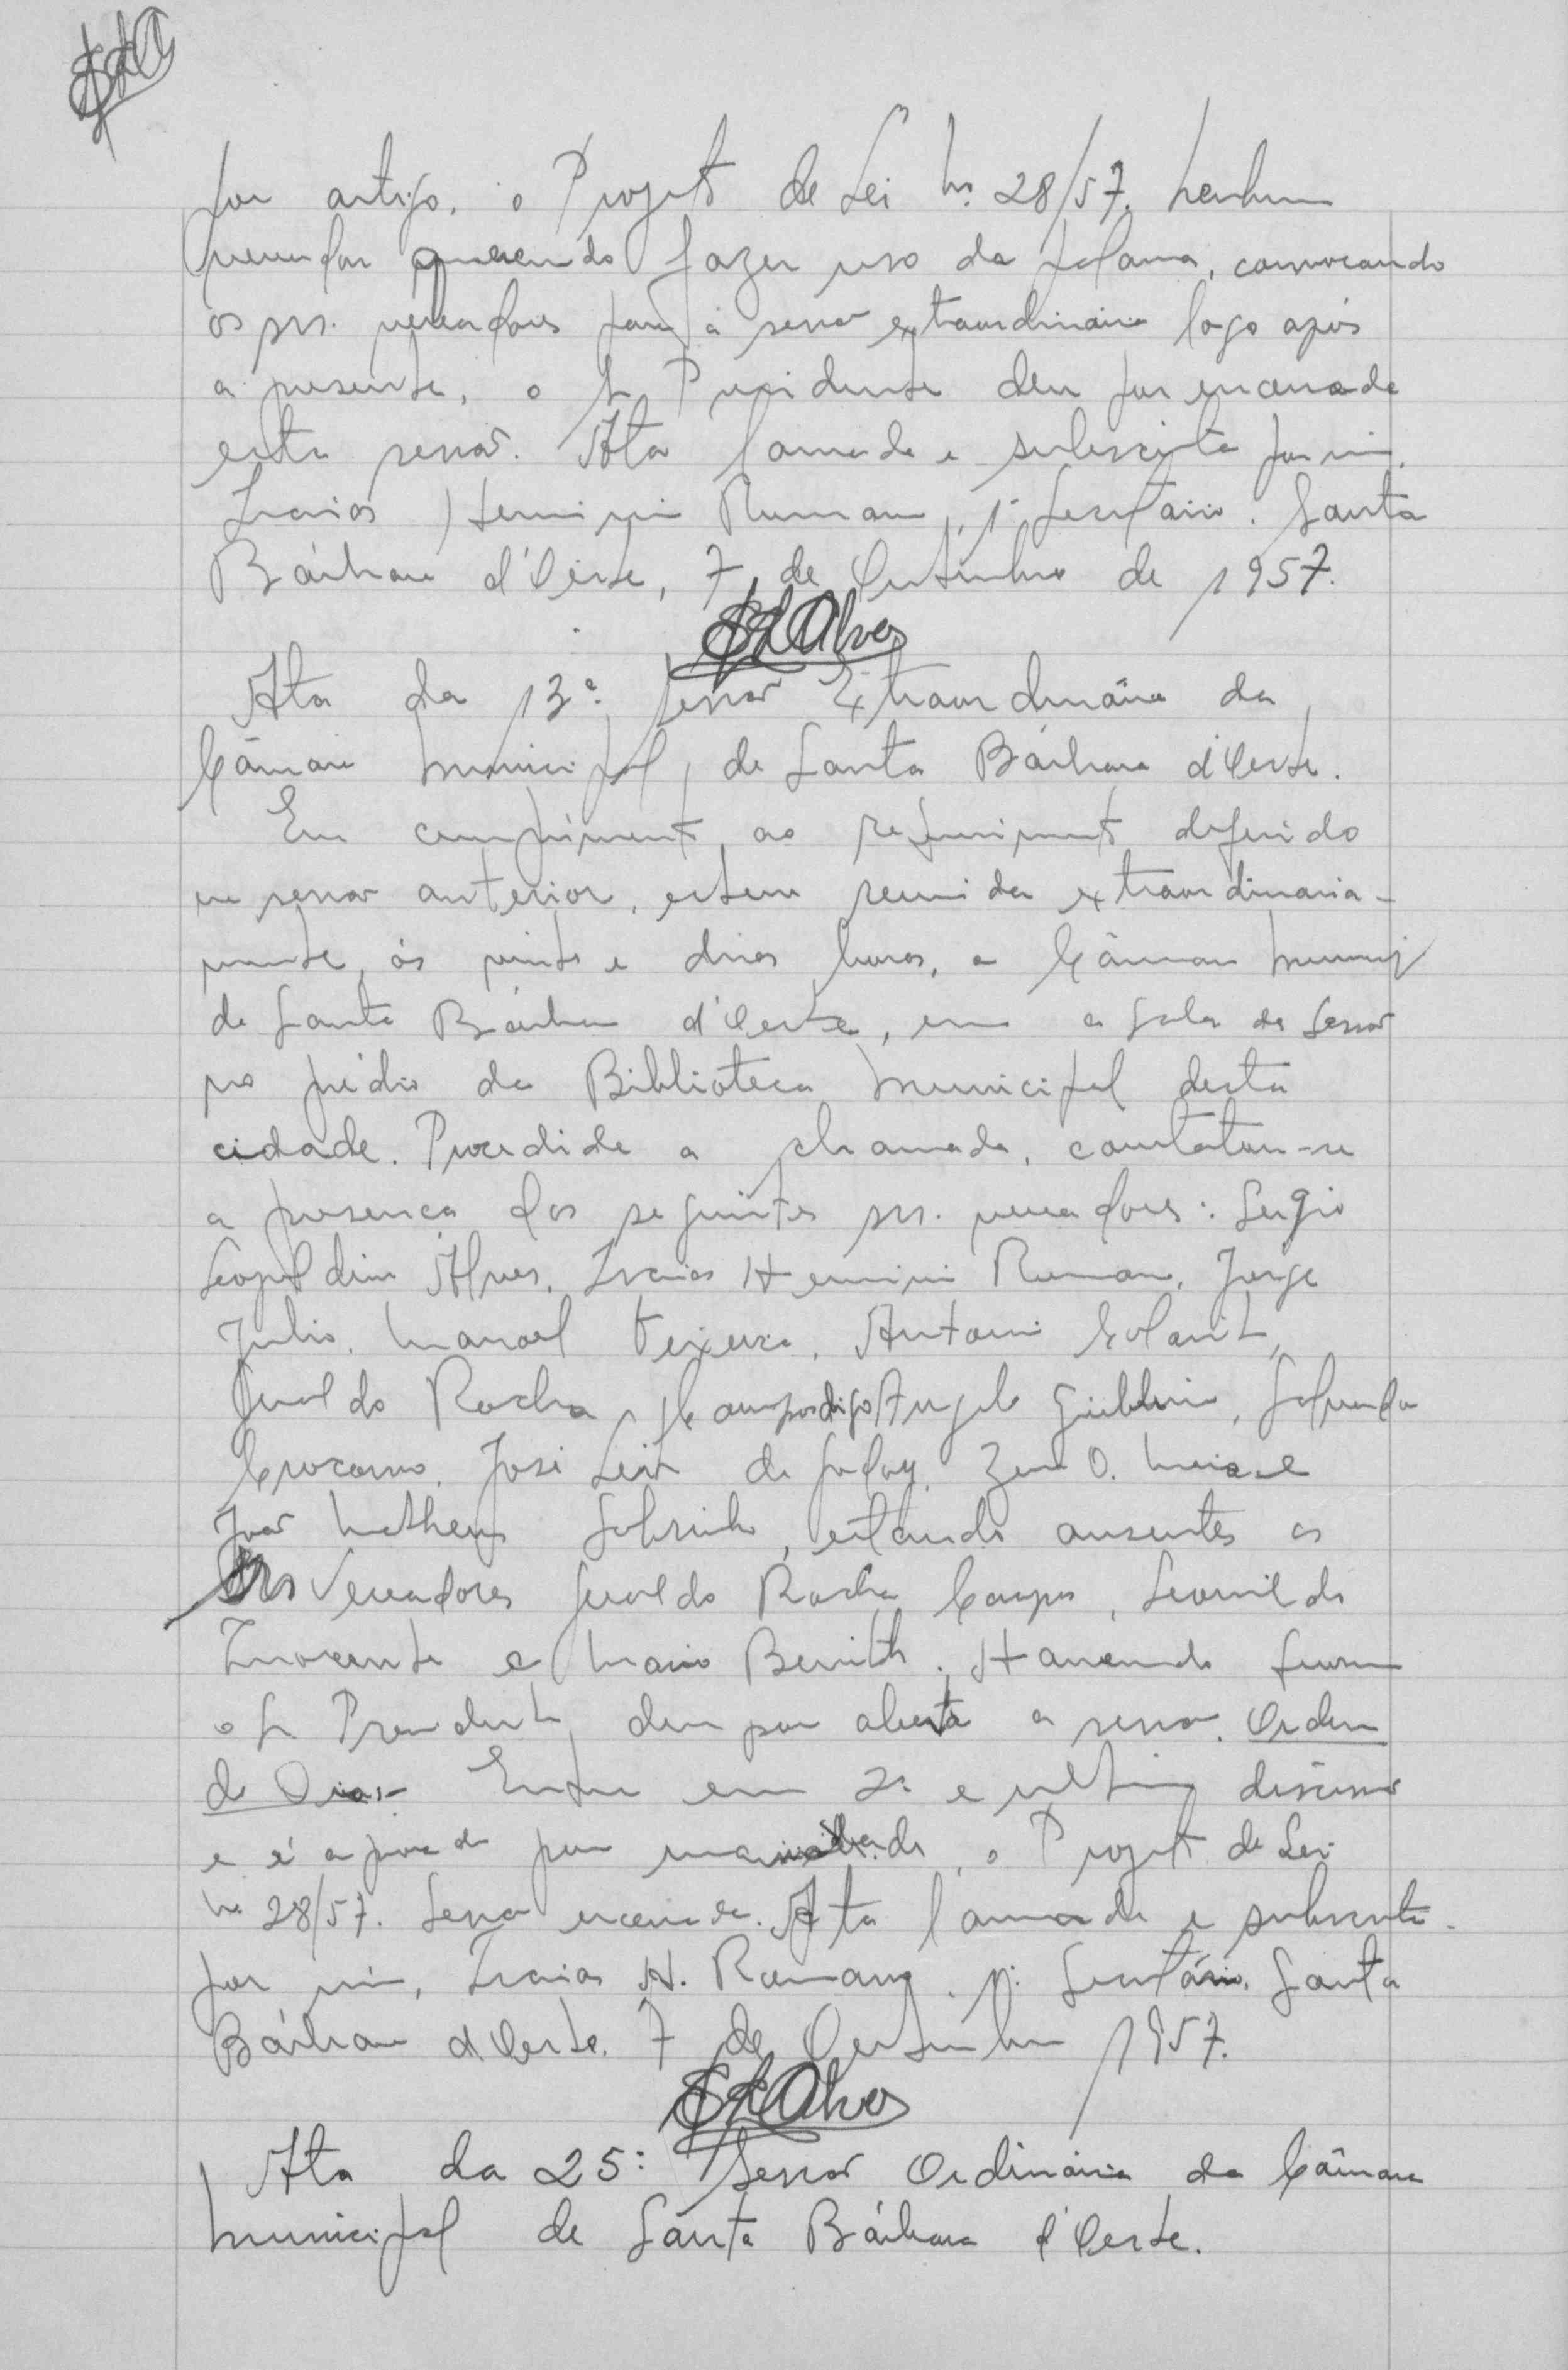 por artigo, o Projeto de Lei nº 28/57. Nenhum
vereador querendo fazer uso da palavra, convocando
os srs. vereadores para a sessão extraordinária logo após
a presente, o Sr Presidente deu por encerrada
esta sessão. Ata lavrada e subscrita por mim,
Isaias Hermini Romano, 1º Secretário. Santa
Bárbara d'Oeste, 7 de Outubro de 1957.
SLAlves
Ata da 13ª Sessão Extraordinária da
Câmara Municipal de Santa Bárbara d'Oeste.
Em cumprimento ao requerimento deferido
na sessão anterior, esteve reunida extraordinaria-
mente, às vinte e duas horas, a Câmara
de Santa Bárbara d'Oeste, em a sala da Sessão
no prédio da Biblioteca Municipal desta
cidade. Procedida a chamada, constatou-se
a presença dos seguintes srs. vereadores: Sergio
Leopoldino Alves, Isaias Hermini Romano, Jorge
Julio, Manoel Teixeira, Antonio
Geraldo Rocha Campos digo Angelo Giubbini, Salvador
Crocomo, José Leite de Godoy, Zeno O. Maia e
João Matheus Sobrinho, estando ausentes os
Srs Vereadores Geraldo Rocha Campos, Leonildo
Inocente e Mario Benith. Havendo
o Sr Presidente deu por aberta a sessão. Ordem
do Dia:- Entra em 2ª e ultima discussão
e é aprovado por unanimidade, o Projeto de Lei
nº 28/57. Sessão encerrada. Ata lavrada e subscrita
por mim, Isaias H. Romano, 1º Secretário. Santa
Bárbara d'Oeste, 7 de Outubro 1957.
SLAlves
Ata da 25ª Sessão Ordinária da Câmara
Municipal de Santa Bárbara d'Oeste.